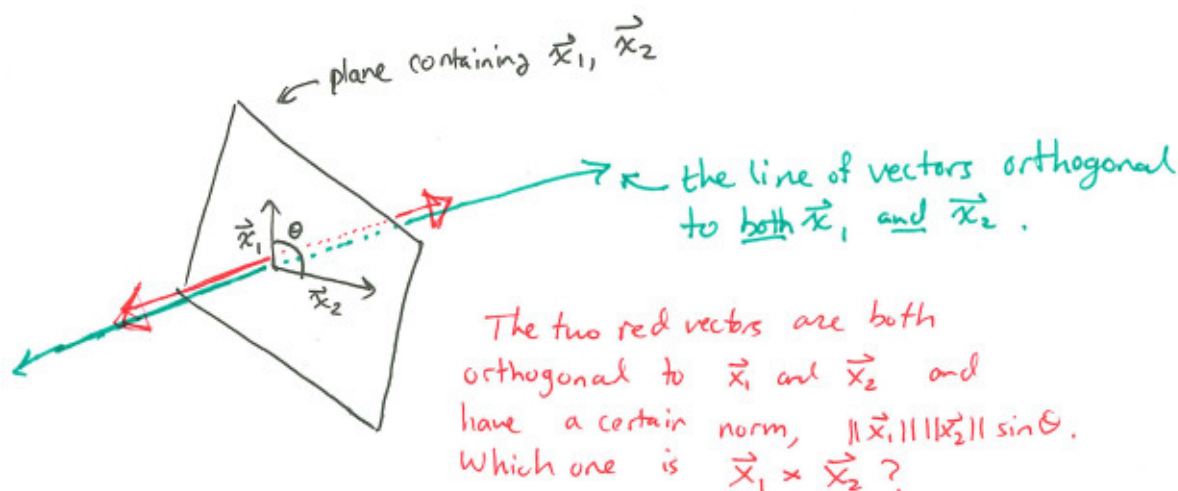 plane containing x⃗₁, x⃗₂
the line of vectors orthogonal
to both x⃗₁ and x⃗₂.
x⃗₁
θ
x⃗₂
The two red vectors are both
orthogonal to x⃗₁ and x⃗₂ and
have a certain norm, ||x⃗₁|| ||x⃗₂|| sinθ.
Which one is x⃗₁ × x⃗₂?